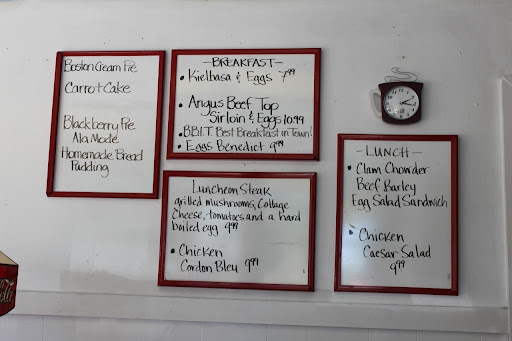 Boston Cream Pie
Carrot Cake
Blackberry Pie
Ala Mode
Homemade Bread
Pudding
-BREAKFAST-
• Kielbasa & Eggs 7.99
• Angus Beef Top
Sirloin & Eggs 10.99
• B.B.I.T. Best Breakfast in Town!
• Eggs Benedict 9.99
Luncheon Steak
grilled mushrooms, Cottage
Cheese, tomatoes and a hard
boiled egg 9.99
• Chicken
Cordon Bley 9.99
- LUNCH -
• Clam Chowder
Beef Barley
Egg Salad Sandwich
• Chicken
Caesar Salad
9.99